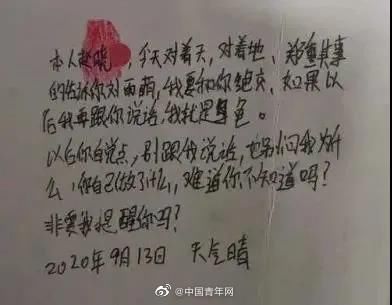 本人赵晓，今天对着天，对着地、郑重其事
的告诉你刘雨萌，我要和你绝交、如果以
后我再跟你说话，我就是色。
以后你自觉点，别跟我说话，也别问我为什
么，你自己做了什么，难道你不知道吗？
非要我提醒你吗？
2020年9月13日 天气晴
@中国青年网